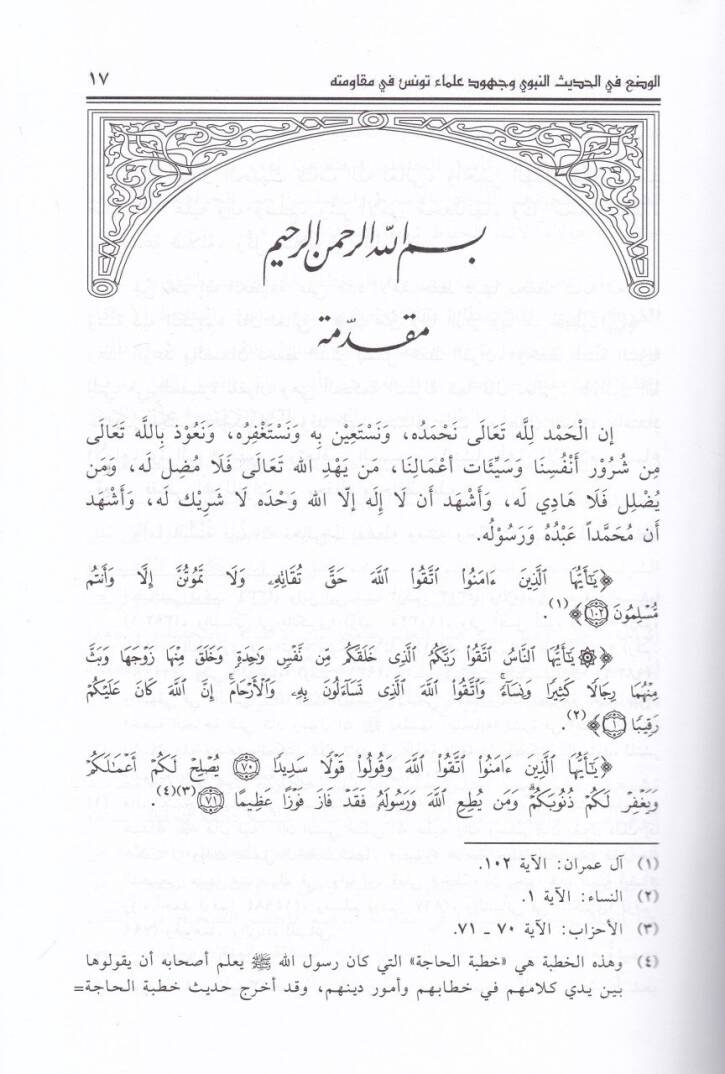 الوضع في الحديث النبوي وجهود علماء تونس في مقاومته ١٧
بسم الله الرحمن الرحيم
مقدّمة
إن الْحَمْدَ لِلَّه تَعَالَى نَحْمَدُه، وَنَسْتَعِيْنِ بِه وَنَسْتَغْفِرُه، وَنَعُوْذ بِاللَّه تَعَالَى
مِن شُرُوْر أَنْفُسِنَا وَسَيِّئَات أَعْمَالِنَا، مَن يَهْدِ الله تَعَالَى فَلَا مُضِل لَه، وَمَن
يُضْلِل فَلَا هَادِي لَه، وَأَشْهَد أَن لَا إِلَه إِلَّا الله وَحْدَه لَا شَرِيْك لَه، وَأَشْهَد
أَن مُحَمَّداً عَبْدُهُ وَرَسُوْلُه.
﴿يَٰٓأَيُّهَا الَّذِينَ ءَامَنُوا۟ اتَّقُوا۟ اللَّهَ حَقَّ تُقَاتِهِۦ وَلَا تَمُوتُنَّ إِلَّا وَأَنتُم
مُّسْلِمُونَ ١٠٢﴾(١)
﴿۞ يَٰٓأَيُّهَا النَّاسُ اتَّقُوا۟ رَبَّكُمُ الَّذِى خَلَقَكُم مِّن نَّفْسٍ وَٰحِدَةٍ وَخَلَقَ مِنْهَا زَوْجَهَا وَبَثَّ
مِنْهُمَا رِجَالًا كَثِيرًا وَنِسَآءً ۚ وَاتَّقُوا۟ اللَّهَ الَّذِى تَسَآءَلُونَ بِهِۦ وَالْأَرْحَامَ ۚ إِنَّ اللَّهَ كَانَ عَلَيْكُمْ
رَقِيبًا ١﴾(٢).
﴿يَٰٓأَيُّهَا الَّذِينَ ءَامَنُوا۟ اتَّقُوا۟ اللَّهَ وَقُولُوا۟ قَوْلًا سَدِيدًا ٧٠ يُصْلِحْ لَكُمْ أَعْمَٰلَكُمْ
وَيَغْفِرْ لَكُمْ ذُنُوبَكُمْ ۗ وَمَن يُطِعِ اللَّهَ وَرَسُولَهُۥ فَقَدْ فَازَ فَوْزًا عَظِيمًا ٧١﴾(٣)(٤).
(١) آل عمران: الآية ١٠٢.
(٢) النساء: الآية ١.
(٣) الأحزاب: الآية ٧٠ ـ ٧١.
(٤) وهذه الخطبة هي «خطبة الحاجة» التي كان رسول الله ﷺ يعلم أصحابه أن يقولوها
بين يدي كلامهم في خطابهم وأمور دينهم، وقد أخرج حديث خطبة الحاجة=